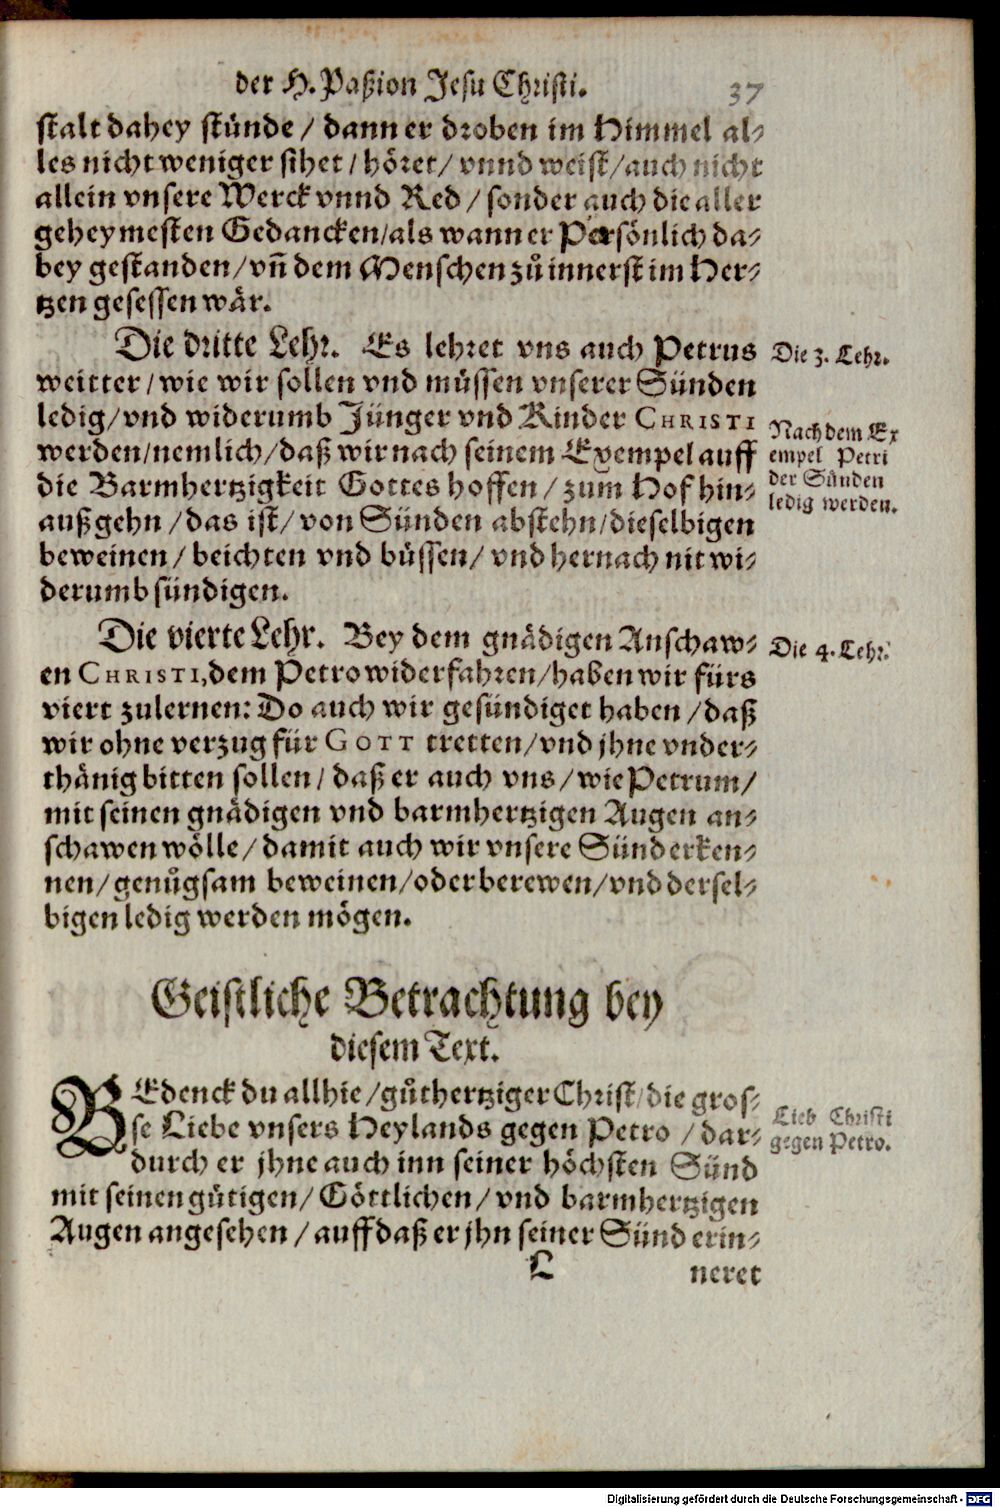 der H. Paßion Jesu Christi. 37
stalt dahey stünde / dann er droben im Himmel al-
les nicht weniger sihet / höret / vnnd weist / auch nicht
allein vnsere Werck vnnd Red / sonder auch die aller
geheymesten Gedancken / als wann er Persönlich da-
bey gestanden / vñ dem Menschen zů innerst im Her-
tzen gesessen wär.
Die dritte Lehr. Es lehret vns auch Petrus
weitter / wie wir sollen vnd müssen vnserer Sünden
ledig / vnd widerumb Jünger vnd Kinder CHRISTI
werden / nemlich / daß wir nach seinem Exempel auff
die Barmhertzigkeit Gottes hoffen / zum Hof hin-
auß gehn / das ist / von Sünden abstehn / dieselbigen
beweinen / beichten vnd büssen / vnd hernach nit wi-
derumb sündigen.
Die 3. Lehr.
Nach dem Ex
empel Petri
der Sünden
ledig werden.
Die vierte Lehr. Bey dem gnädigen Anschaw-
en CHRISTI, dem Petro widerfahren / haben wir fürs
viert zulernen: Do auch wir gesündiget haben / daß
wir ohne verzug für GOTT tretten / vnd jhne vnder-
thänig bitten sollen / daß er auch vns / wie Petrum /
mit seinen gnädigen vnd barmhertzigen Augen an-
schawen wölle / damit auch wir vnsere Sünd erken-
nen / genůgsam beweinen / oder berewen / vnd dersel-
bigen ledig werden mögen.
Die 4. Lehr.
Geistliche Betrachtung bey
diesem Text.
BEdenck du allhie / gůthertziger Christ / die gros-
se Liebe vnsers Heylands gegen Petro / dar-
durch er jhne auch inn seiner höchsten Sünd
mit seinen gütigen / Göttlichen / vnd barmhertzigen
Augen angesehen / auff daß er jhn seiner Sünd erin-
Lieb Christi
gegen Petro.
L neret
Digitalisierung gefördert durch die Deutsche Forschungsgemeinschaft - DFG